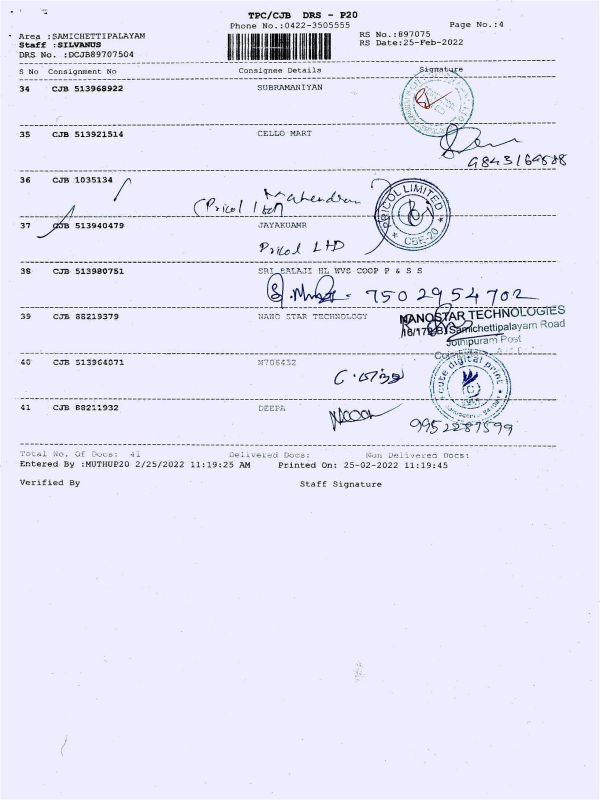 TPC/CJB DRS - P20
Phone No.:0422-3505555
Page No.:4
Area :SAMICHETTIPALAYAM
RS No.:897075
Staff :SILVANUS
RS Date:25-Feb-2022
DRS No. :DCJB89707504
S No Consignment No Consignee Details Signature
34 CJB 513968922 SUBRAMANIYAN
35 CJB 513921514 CELLO MART
36 CJB 1035134
Mahendran
(Pricol ltd)
PRICOL LIMITED
CBE-20
37 CJB 513940479 JAYAKUAMR
Pricol LTD
38 CJB 513980751 SRI BALAJI HL WVS COOP P & S S
7502954702
39 CJB 88219379 NANO STAR TECHNOLOGY
NANOSTAR TECHNOLOGIES
Samichettipalayam Road
Jothipuram Post
40 CJB 513964071 N706432
cute digital print
41 CJB 88211932 DEEPA
9952287599
Total No. Of Docs: 41 Delivered Docs: Non Delivered Docs:
Entered By :MUTHUP20 2/25/2022 11:19:25 AM Printed On: 25-02-2022 11:19:45
Verified By Staff Signature